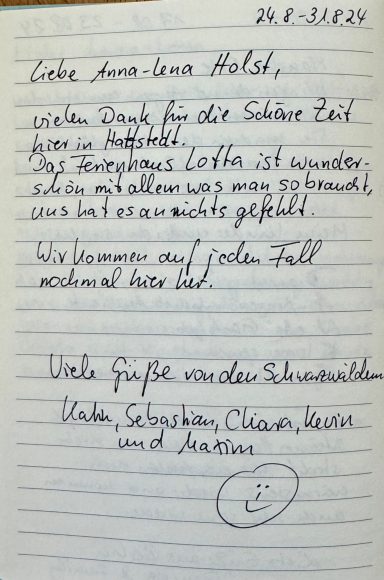 24.8.-31.8.24
Liebe Anna-Lena Holst,
vielen Dank für die Schöne Zeit
hier in Hattstedt.
Das Ferienhaus Lotta ist wunder-
schön mit allem was man so braucht,
uns hat es an nichts gefehlt.
Wir kommen auf jeden Fall
nochmal hier her.
Viele Grüße von den Schwarzwäldern
Sebastian, Chiara, Kevin
und Maxim